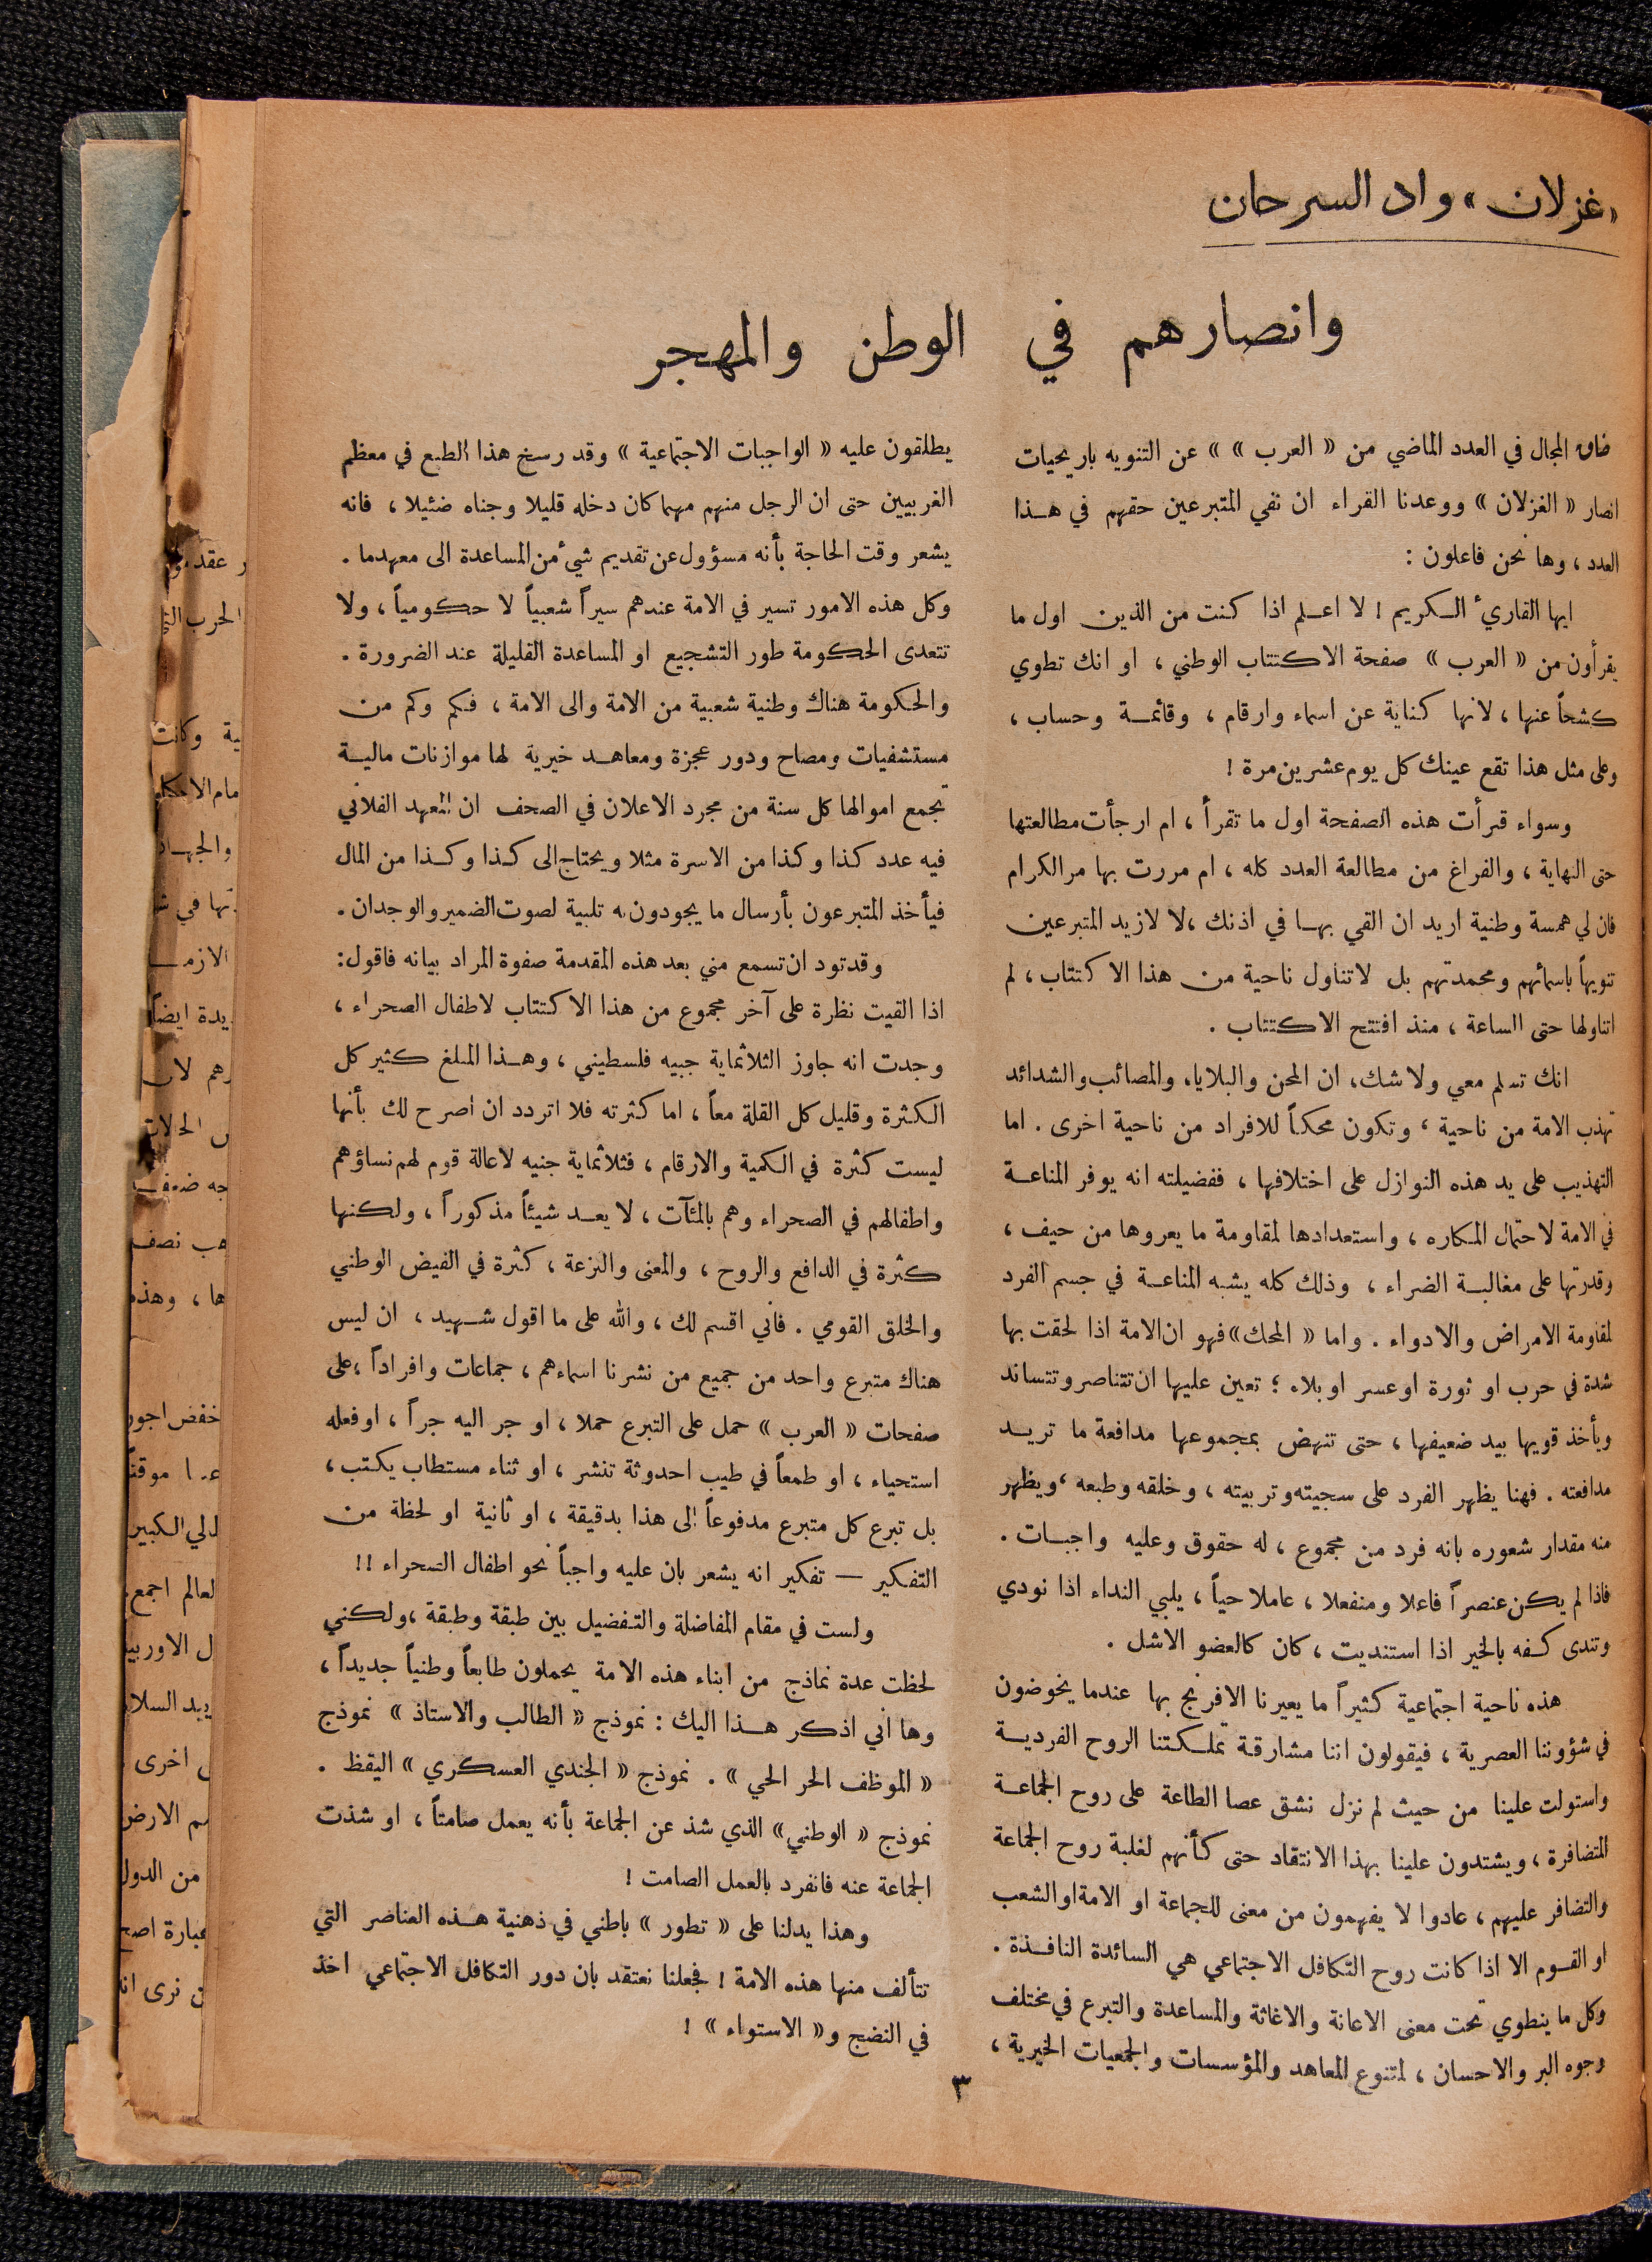 «غزلان» واد السرحان
وانصارهم في الوطن والمهجر
ضاق المجال في العدد الماضي من « العرب » » عن التنويه باريحيات
انصار « الغزلان » ووعدنا القراء ان نفي المتبرعين حقهم في هـذا
العدد ، وها نحن فاعلون :
ايها القارئ الـكريم ! لا اعـلم اذا كنت من الذين اول ما
يقرأون من « العرب » صفحة الاكتتاب الوطني ، او انك تطوي
كشحاً عنها ، لانها كناية عن اسماء وارقام ، وقائمـة وحساب ،
وعلى مثل هذا تقع عينك كل يوم عشرين مرة !
وسواء قرأت هذه الصفحة اول ما تقرأ ، ام ارجأت مطالعتها
حتى النهاية ، والفراغ من مطالعة العدد كله ، ام مررت بها مر الكرام
فان لي همسة وطنية اريد ان القي بهـا في اذنك ،لا لازيد المتبرعين
تنويهاً باسمائهم ومحمدتهم بل لاتناول ناحية من هذا الاكتتاب ، لم
اتناولها حتى الساعة ، منذ افتتح الاكتتاب .
انك تسلم معي ولا شك، ان المحن والبلايا، والمصائب والشدائد
تهذب الامة من ناحية ، وتكون محكاً للافراد من ناحية اخرى . اما
التهذيب على يد هذه النوازل على اختلافها ، ففضيلته انه يوفر المناعـة
في الامة لاحتمال المكاره ، واستعدادها لمقاومة ما يعروها من حيف ،
وقدرتها على مغالبـة الضراء ، وذلك كله يشبه المناعـة في جسم الفرد
لمقاومة الامراض والادواء . واما « المحك» فهو ان الامة اذا لحقت بها
شدة في حرب او ثورة او عسر او بلاء ؛ تعين عليها ان تتناصر وتتساند
ويأخذ قويها بيد ضعيفها ، حتى تنهض بمجموعها مدافعة ما تريـد
مدافعته . فهنا يظهر الفرد على سجيته وتربيته ، وخلقه وطبعه ، ويظهر
منه مقدار شعوره بانه فرد من مجموع ، له حقوق وعليه واجبـات .
فاذا لم يكن عنصراً فاعلا ومنفعلا ، عاملا حياً ، يلبي النداء اذا نودي
وتندى كفه بالخير اذا استنديت ، كان كالعضو الاشل .
هذه ناحية اجتماعية كثيراً ما يعيرنا الافرنج بها عندما يخوضون
في شؤوننا العصرية ، فيقولون اننا مشارقة تملـكتنا الروح الفرديـة
واستولت علينا من حيث لم نزل نشق عصا الطاعة على روح الجماعـة
المتضافرة ، ويشتدون علينا بهذا الانتقاد حتى كأنهم لغلبة روح الجماعة
والتضافر عليهم ، عادوا لا يفهمون من معنى للجماعة او الامة او الشعب
او القـوم الا اذا كانت روح التكافل الاجتماعي هي السائدة النافـذة .
وكل ما ينطوي تحت معنى الاعانة والاغاثة والمساعدة والتبرع في مختلف
وجوه البر والاحسان ، لتنوع المعاهد والمؤسسات والجمعيات الخيرية ،
يطلقون عليه « الواجبات الاجتماعية » وقد رسخ هذا الطبع في معظم
الغربيين حتى ان الرجل منهم مهما كان دخله قليلا وجناه ضئيلا ، فانه
يشعر وقت الحاجة بأنه مسؤول عن تقديم شئ من المساعدة الى معهد ما .
وكل هذه الامور تسير في الامة عندهم سيراً شعبياً لا حكومياً ، ولا
تتعدى الحكومة طور التشجيع او المساعدة القليلة عند الضرورة .
والحكومة هناك وطنية شعبية من الامة والى الامة ، فكم وكم من
مستشفيات ومصاح ودور عجزة ومعاهـد خيرية لها موازنات ماليـة
تجمع اموالها كل سنة من مجرد الاعلان في الصحف ان المعهد الفلاني
فيه عدد كذا وكذا من الاسرة مثلا ويحتاج الى كـذا وكـذا من المال
فيأخذ المتبرعون بأرسال ما يجودون به تلبية لصوت الضمير والوجدان .
وقد تود ان تسمع مني بعد هذه المقدمة صفوة المراد بيانه فاقول:
اذا القيت نظرة على آخر مجموع من هذا الاكتتاب لاطفال الصحراء ،
وجدت انه جاوز الثلاثماية جبيه فلسطيني ، وهـذا المبلغ كثير كل
الكثرة وقليل كل القلة معاً ، اما كثرته فلا اتردد ان اصرح لك بأنها
ليست كثرة في الـكمية والارقام ، فثلاثماية جنيه لاعالة قوم لهم نساؤهم
واطفالهم في الصحراء وهم بالمئآت ، لا يعـد شيئاً مذكوراً ، ولكنها
كثرة في الدافع والروح ، والمعنى والنزعة ، كثرة في الفيض الوطني
والخلق القومي . فاني اقسم لك ، والله على ما اقول شـهيد ، ان ليس
هناك متبرع واحد من جميع من نشرنا اسماءهم ، جماعات وافراداً ،على
صفحات « العرب » حمل على التبرع حملا ، او جر اليه جراً ، او فعله
استحياء ، او طمعاً في طيب احدوثة تنشر ، او ثناء مستطاب يكتب ،
بل تبرع كل متبرع مدفوعاً الى هذا بدقيقة ، او ثانية او لحظة من
التفـكير — تفكير انه يشعر بان عليه واجباً نحو اطفال الصحراء !!
ولست في مقام المفاضلة والتفضيل بين طبقة وطبقة ،ولكني
لحظت عدة نماذج من ابناء هذه الامة يحملون طابعاً وطنياً جديداً ،
وها اني اذكر هـذا اليك : نموذج « الطالب والاستاذ » نموذج
« الموظف الحر الحي » . نموذج « الجندي العسكري » اليقظ .
نموذج « الوطني» الذي شذ عن الجماعة بأنه يعمل صامتاً ، او شذت
الجماعة عنه فانفرد بالعمل الصامت !
وهذا يدلنا على « تطور » باطني في ذهنية هـذه العناصر التي
تتألف منها هذه الامة ! فجعلنا نعتقد بان دور التكافل الاجتماعي اخذ
في النضج و« الاستواء » !
٣